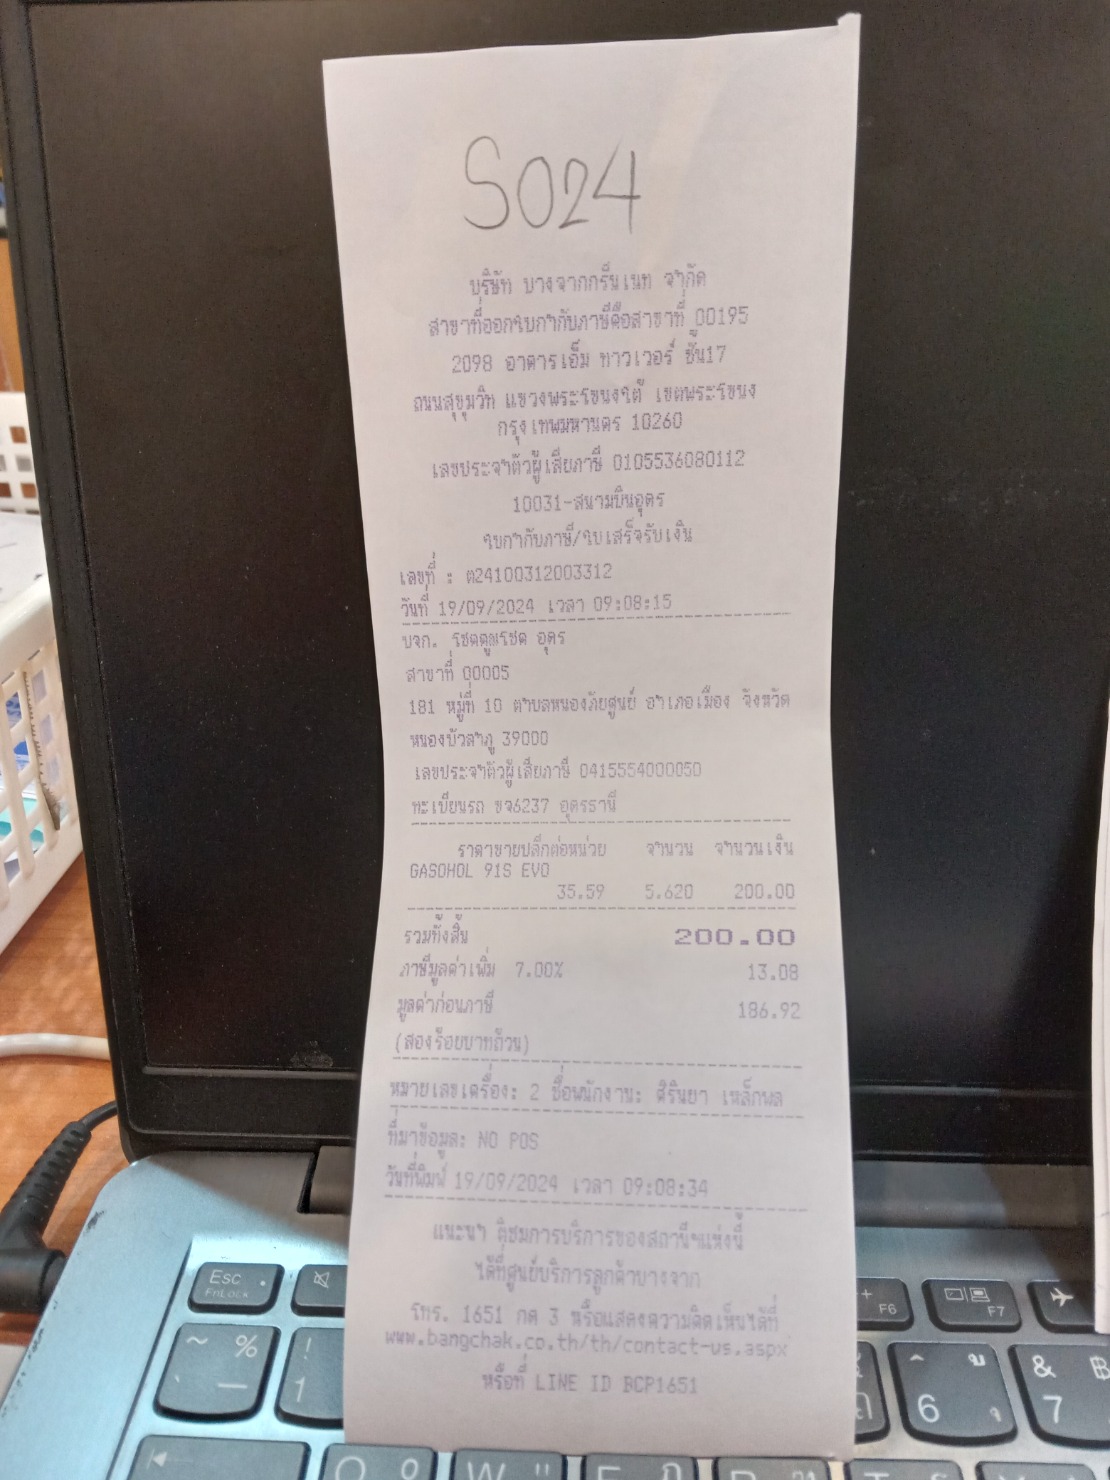 S024
บริษัท บางจากกรีนเนท จำกัด
สาขาที่ออกใบกำกับภาษีคือสาขาที่ 00195
2098 อาคารเอ็ม ทาวเวอร์ ชั้น17
ถนนสุขุมวิท แขวงพระโขนงใต้ เขตพระโขนง
กรุงเทพมหานคร 10260
เลขประจำตัวผู้เสียภาษี 0105536080112
10031-สนามบินอุดร
ใบกำกับภาษี/ใบเสร็จรับเงิน
เลขที่ : ต24100312003312
วันที่ 19/09/2024 เวลา 09:08:15
บจก. โชตคูณโชต อุดร
สาขาที่ 00005
181 หมู่ที่ 10 ตำบลหนองภัยศูนย์ อำเภอเมือง จังหวัด
หนองบัวลำภู 39000
เลขประจำตัวผู้เสียภาษี 0415554000050
ทะเบียนรถ ขจ6237 อุดรธานี
ราคาขายปลีกต่อหน่วย จำนวน จำนวนเงิน
GASOHOL 91S EVO
35.59 5.620 200.00
รวมทั้งสิ้น 200.00
ภาษีมูลค่าเพิ่ม 7.00% 13.08
มูลค่าก่อนภาษี 186.92
(สองร้อยบาทถ้วน)
หมายเลขเครื่อง: 2 ชื่อพนักงาน: ศิรินยา เหล็กพล
ที่มาข้อมูล: NO POS
วันที่พิมพ์ 19/09/2024 เวลา 09:08:34
แนะนำ ติชมการบริการของสถานีฯแห่งนี้
ได้ที่ศูนย์บริการลูกค้าบางจาก
โทร. 1651 กด 3 หรือแสดงความคิดเห็นได้ที่
www.bangchak.co.th/th/contact-us.aspx
หรือที่ LINE ID BCP1651
Esc
FnLock
F6
F7
~ %
!
1
^
6
&
7
Q
W